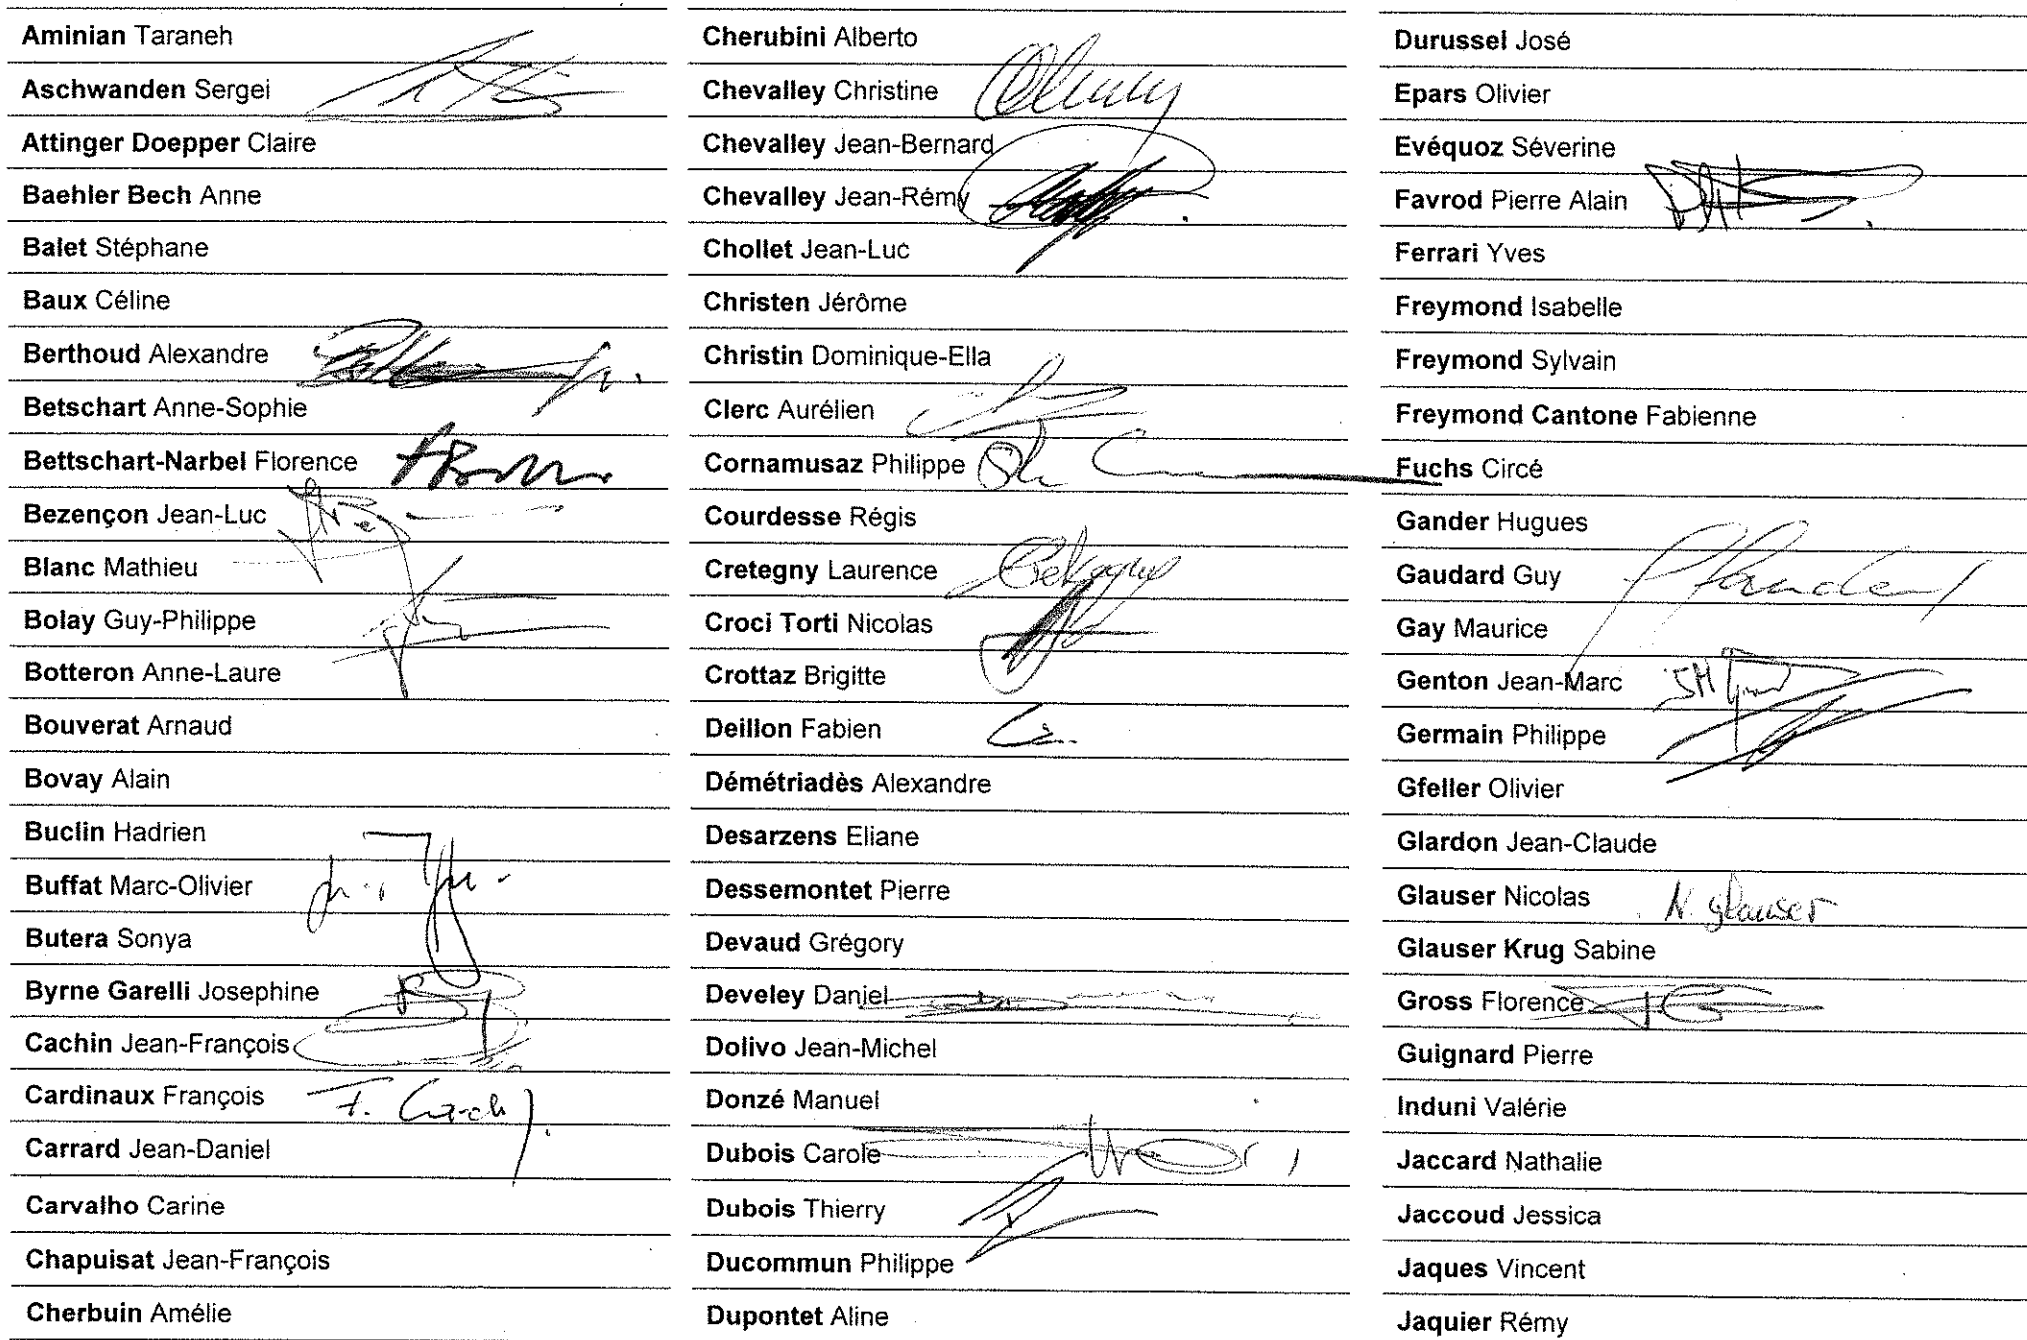 Aminian Taraneh
Aschwanden Sergei
Attinger Doepper Claire
Baehler Bech Anne
Balet Stéphane
Baux Céline
Berthoud Alexandre
Betschart Anne-Sophie
Bettschart-Narbel Florence
Bezençon Jean-Luc
Blanc Mathieu
Bolay Guy-Philippe
Botteron Anne-Laure
Bouverat Arnaud
Bovay Alain
Buclin Hadrien
Buffat Marc-Olivier
Butera Sonya
Byrne Garelli Josephine
Cachin Jean-François
Cardinaux François
Carrard Jean-Daniel
Carvalho Carine
Chapuisat Jean-François
Cherbuin Amélie
Cherubini Alberto
Chevalley Christine
Chevalley Jean-Bernard
Chevalley Jean-Rémy
Chollet Jean-Luc
Christen Jérôme
Christin Dominique-Ella
Clerc Aurélien
Cornamusaz Philippe
Courdesse Régis
Cretegny Laurence Cretegny
Croci Torti Nicolas
Crottaz Brigitte
Deillon Fabien
Démétriadès Alexandre
Desarzens Eliane
Dessemontet Pierre
Devaud Grégory
Develey Daniel
Dolivo Jean-Michel
Donzé Manuel
Dubois Carole
Dubois Thierry
Ducommun Philippe
Dupontet Aline
Durussel José
Epars Olivier
Evéquoz Séverine
Favrod Pierre Alain
Ferrari Yves
Freymond Isabelle
Freymond Sylvain
Freymond Cantone Fabienne
Fuchs Circé
Gander Hugues
Gaudard Guy
Gay Maurice
Genton Jean-Marc
Germain Philippe
Gfeller Olivier
Glardon Jean-Claude
Glauser Nicolas N. Glauser
Glauser Krug Sabine
Gross Florence
Guignard Pierre
Induni Valérie
Jaccard Nathalie
Jaccoud Jessica
Jaques Vincent
Jaquier Rémy